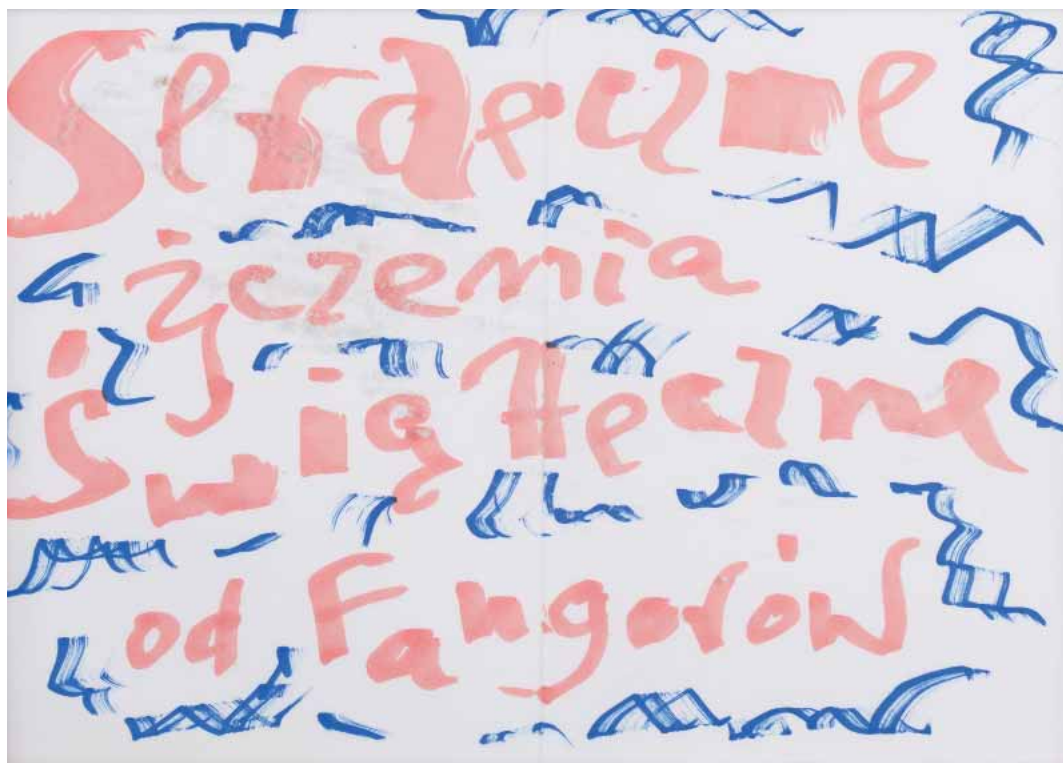 Serdeczne
życzenia
Świąteczne
od Fangorów